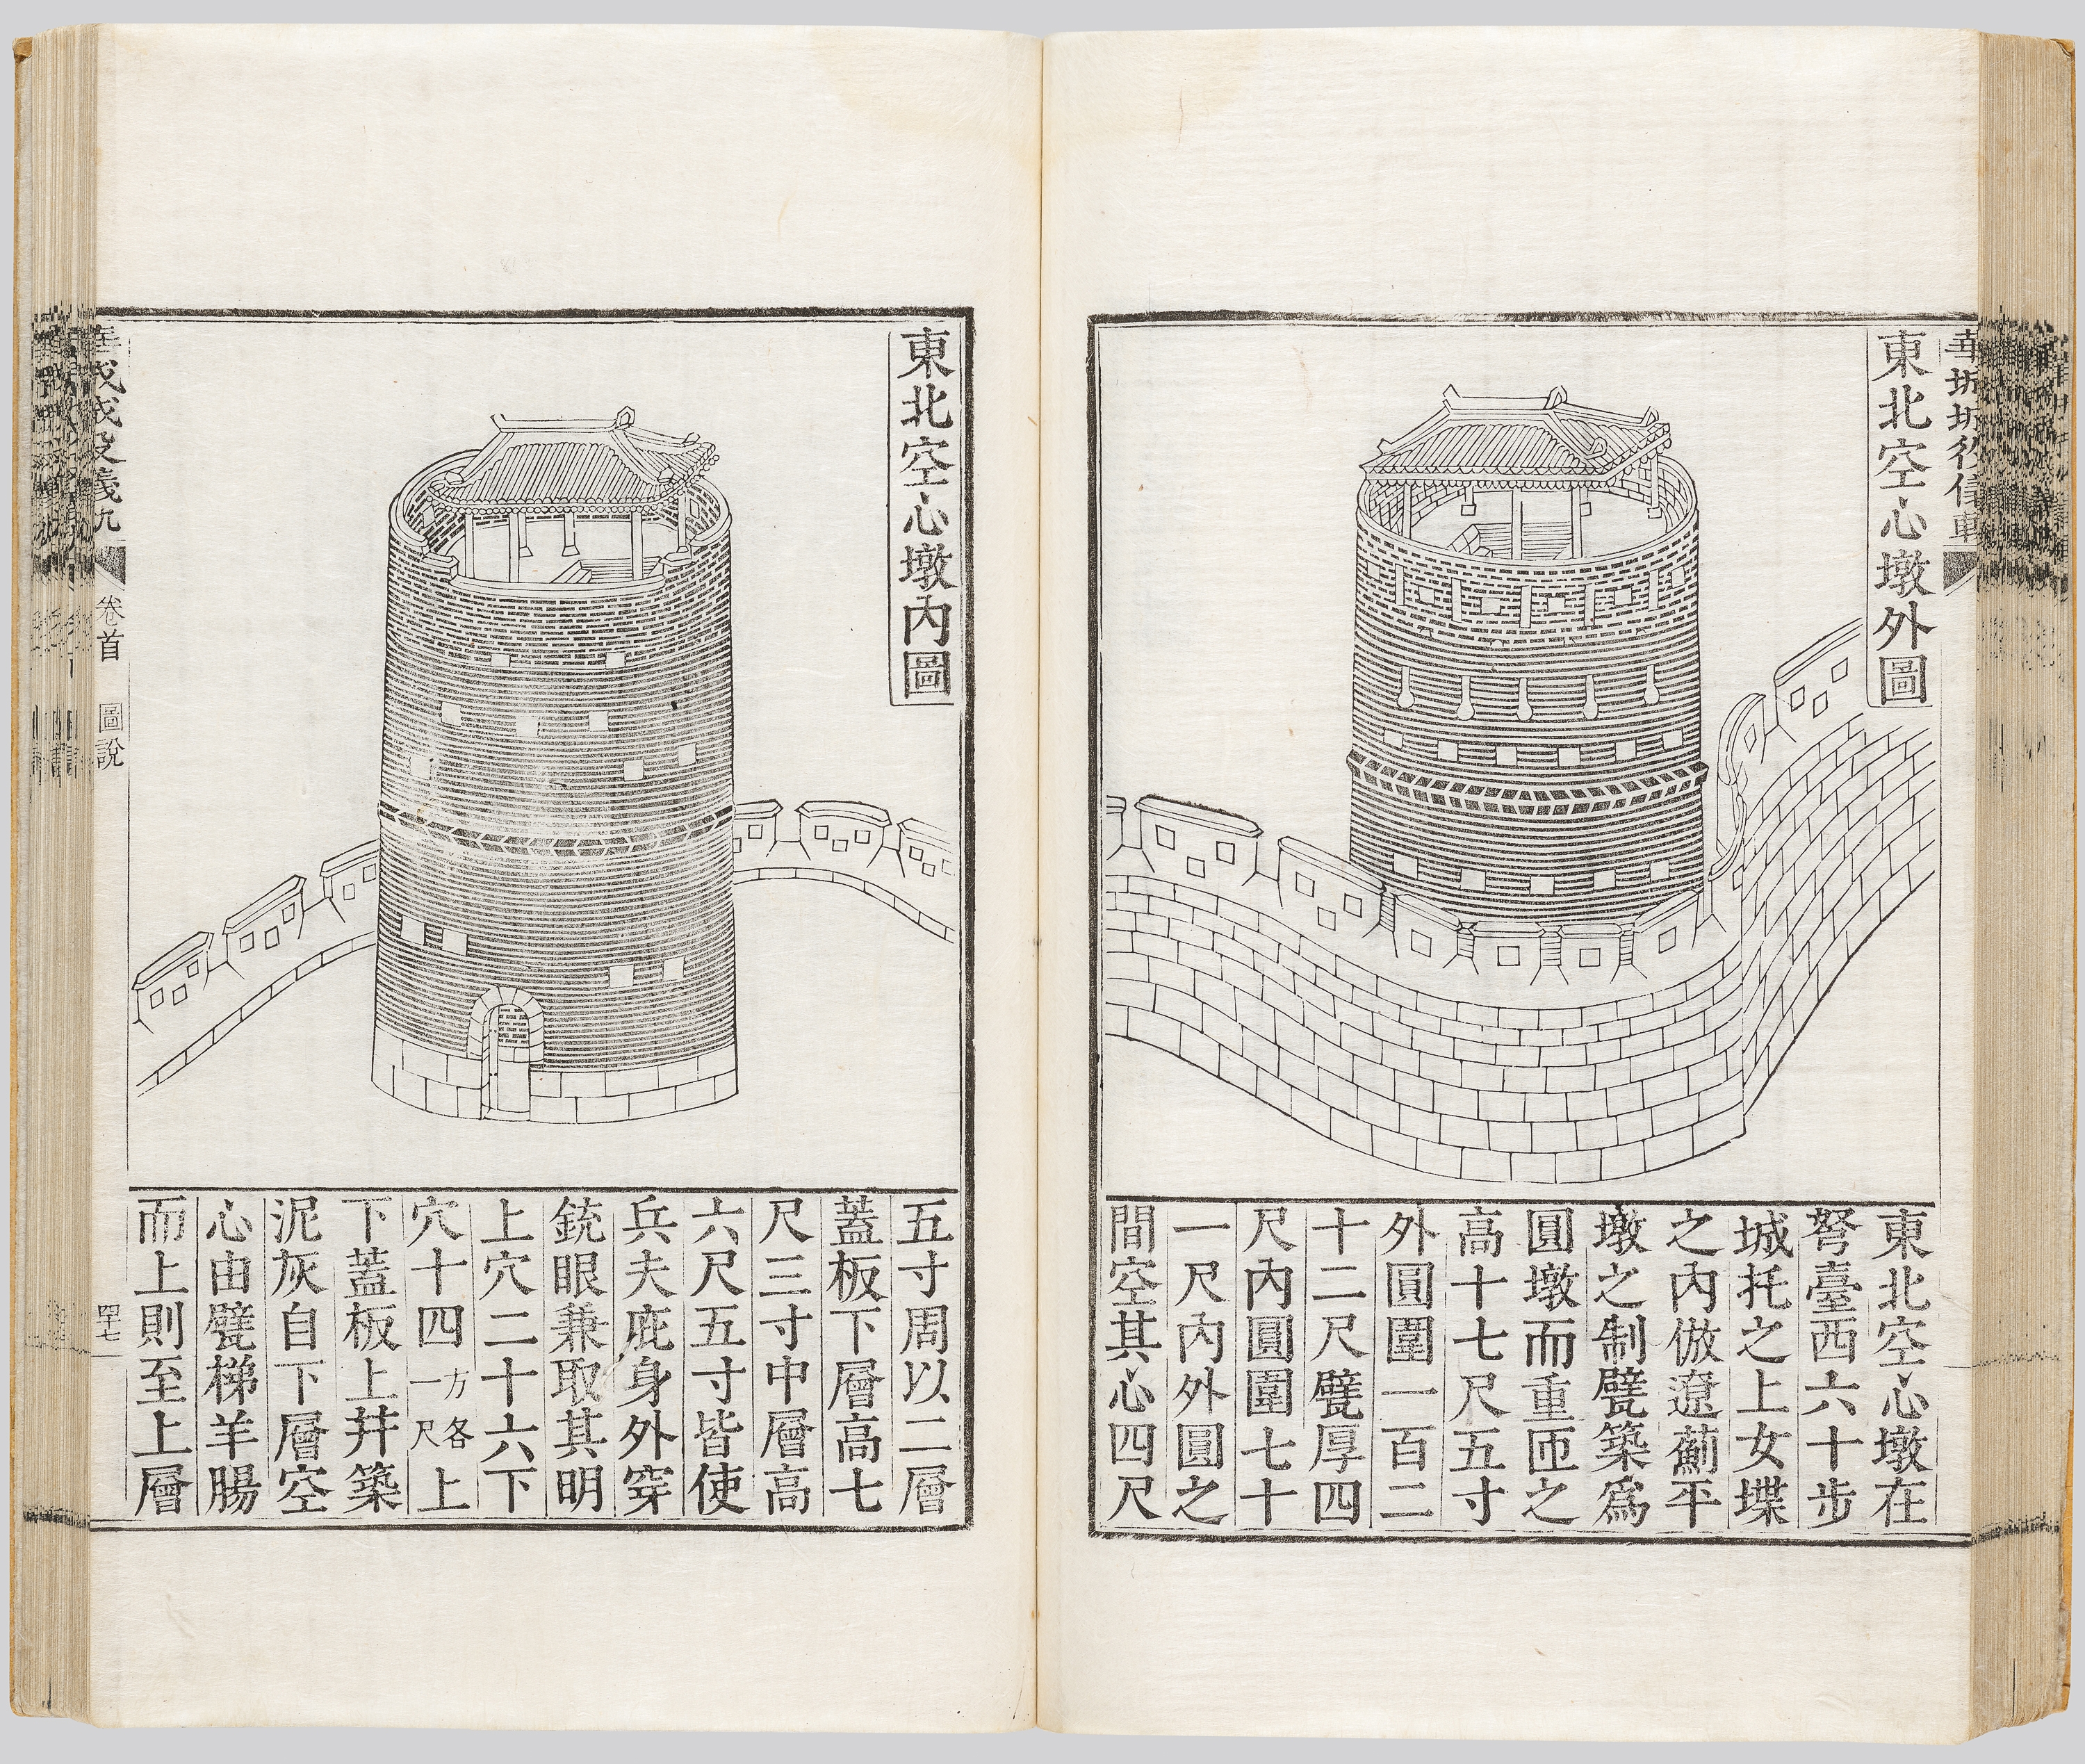 東北空心墩外圖
東北空心墩在
弩臺西六十步
城托之上女堞
之內倣遼薊平
墩之制甓築爲
圓墩而重匝之
高十七尺五寸
外圓圍一百二
十二尺甓厚四
尺內圓圍七十
一尺內外圓之
間空其心四尺
東北空心墩內圖
五寸周以二層
蓋板下層高七
尺三寸中層高
六尺五寸皆使
兵夫庇身外穿
銃眼兼取其明
上穴二十六下
穴十四方各一尺上
下蓋板上幷築
泥灰自下層空
心由甓梯羊腸
而上則至上層
卷首 圖說
四十七